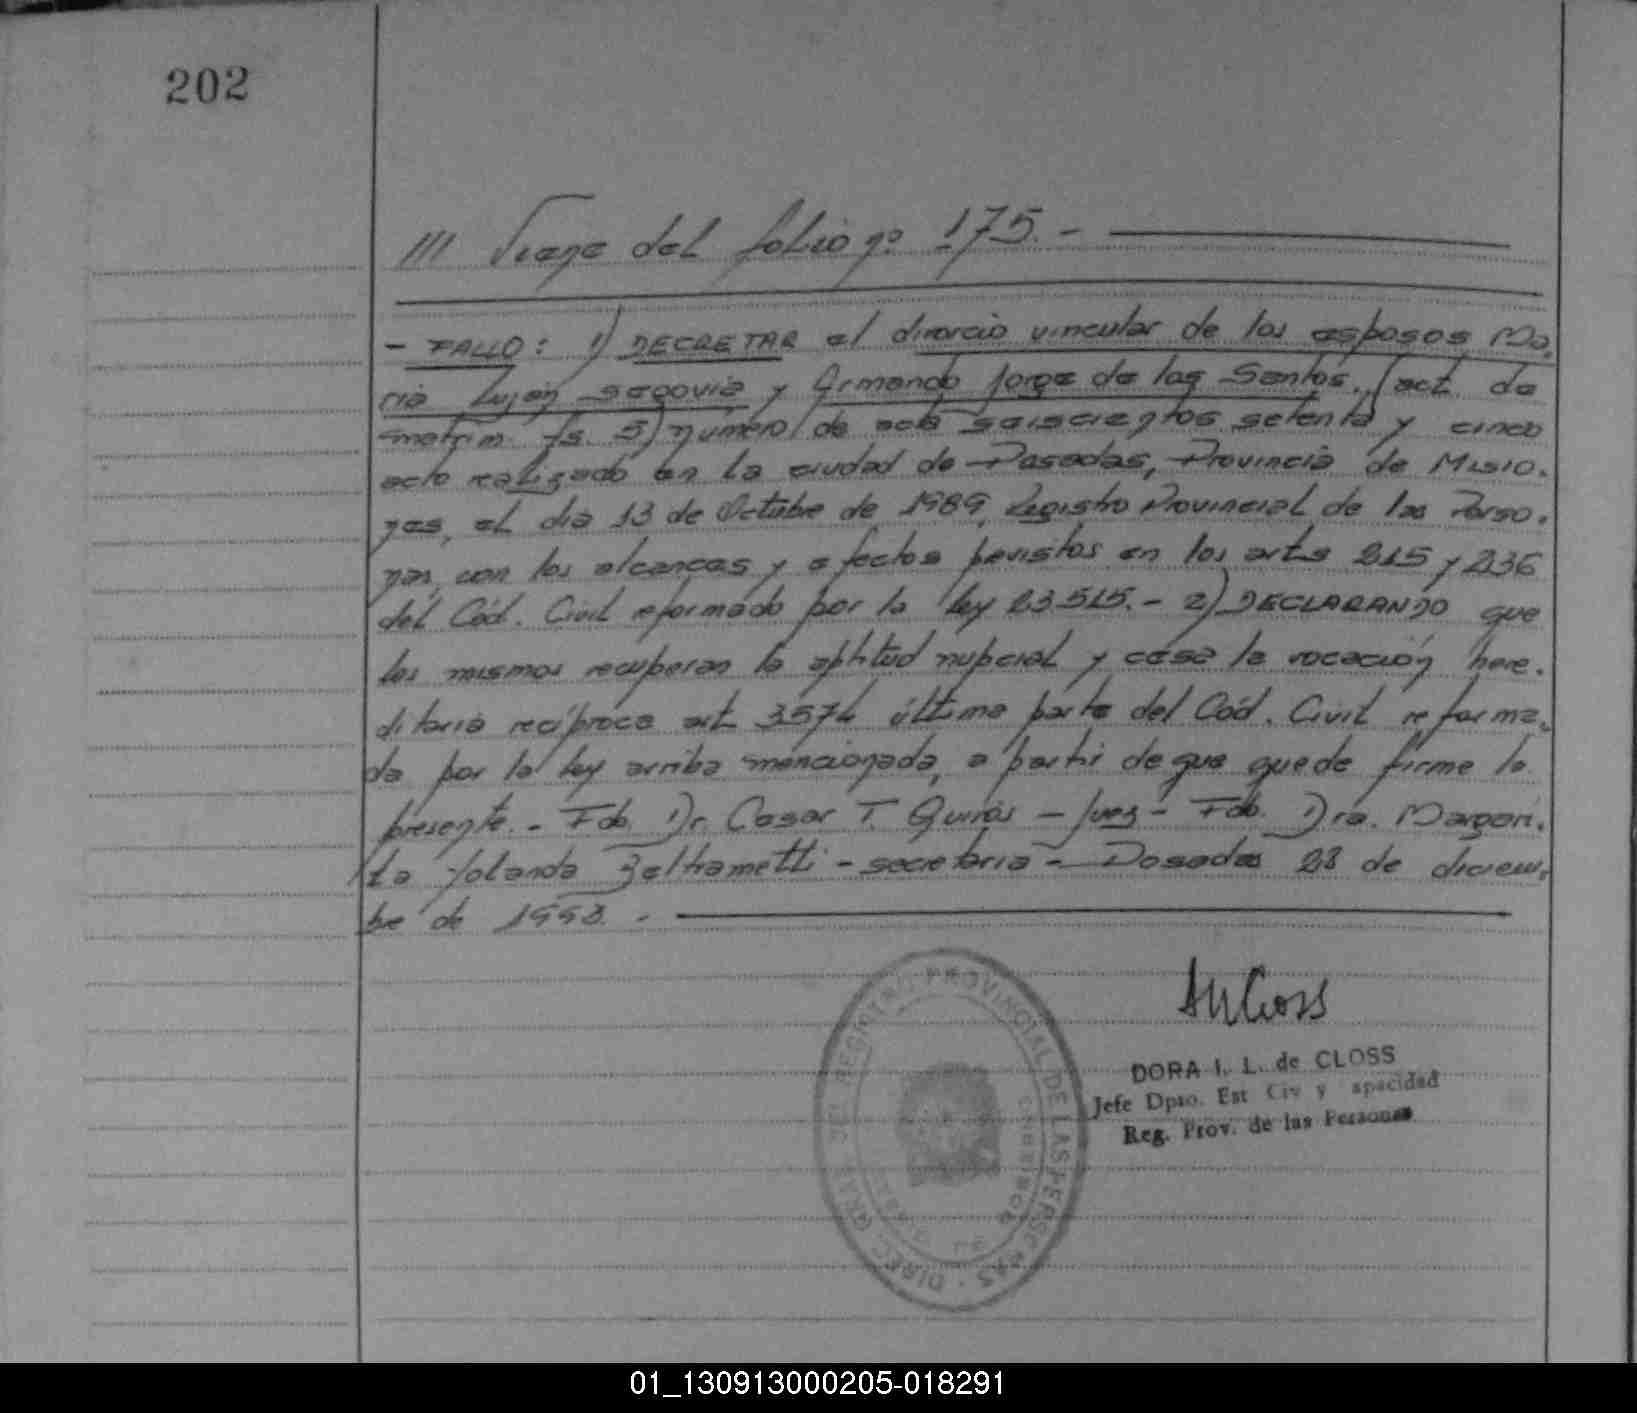 202
/// Viene del folio nº 175.-
- FALLO: 1) DECRETAR el divorcio vincular de los esposos Ma.
ria Luján Segovia y Armando Jorge de los Santos. (act. de
matrim. fs. 5) número de acta seiscientos setenta y cinco
acto realizado en la ciudad de Posadas, Provincia de Misio.
nes, el día 13 de Octubre de 1989, Registro Provincial de las Perso.
nas, con los alcances y efectos previstos en los arts 215 y 236
del Cód. Civil reformado por la ley 23.515.- 2) DECLARANDO que
los mismos recuperan la aptitud nupcial y cesa la vocación here.
ditaria recíproca art 3574 última parte del Cód. Civil reforma.
da por la ley arriba mencionada, a partir de que quede firme la
presente.- Fdo. Dr. Cesar T. Quirós - Juez - Fdo. Dra. Margari.
ta Yolanda Beltrametti - secretaria - Posadas 28 de diciem.
bre de 1993.-
DORA I. L. de CLOSS
Jefe Dpto. Est Civ y apacidad
Reg. Prov. de las Personas
DIREC. GRAL. DEL REGISTRO PROVINCIAL DE LAS PERSONAS
01_130913000205-018291